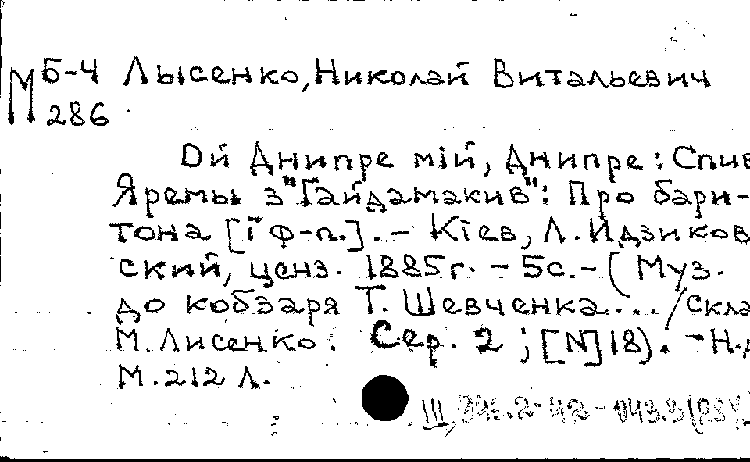 М Б-4 Лысенко, Николай Витальевич
286
Ой Днипре мій, Днипре: Спив
Яремы з"Гайдамакив": Про бари-
тона [ї ф-п.]. - Кіев, Л. Идзиков
ский, ценз. 1885г. - 5с. - (Муз.
до кобзаря Т. Шевченка..../Скла
М. Лисенко. Сер. 2 ; [N]18). - Н.д
М. 212 Л.